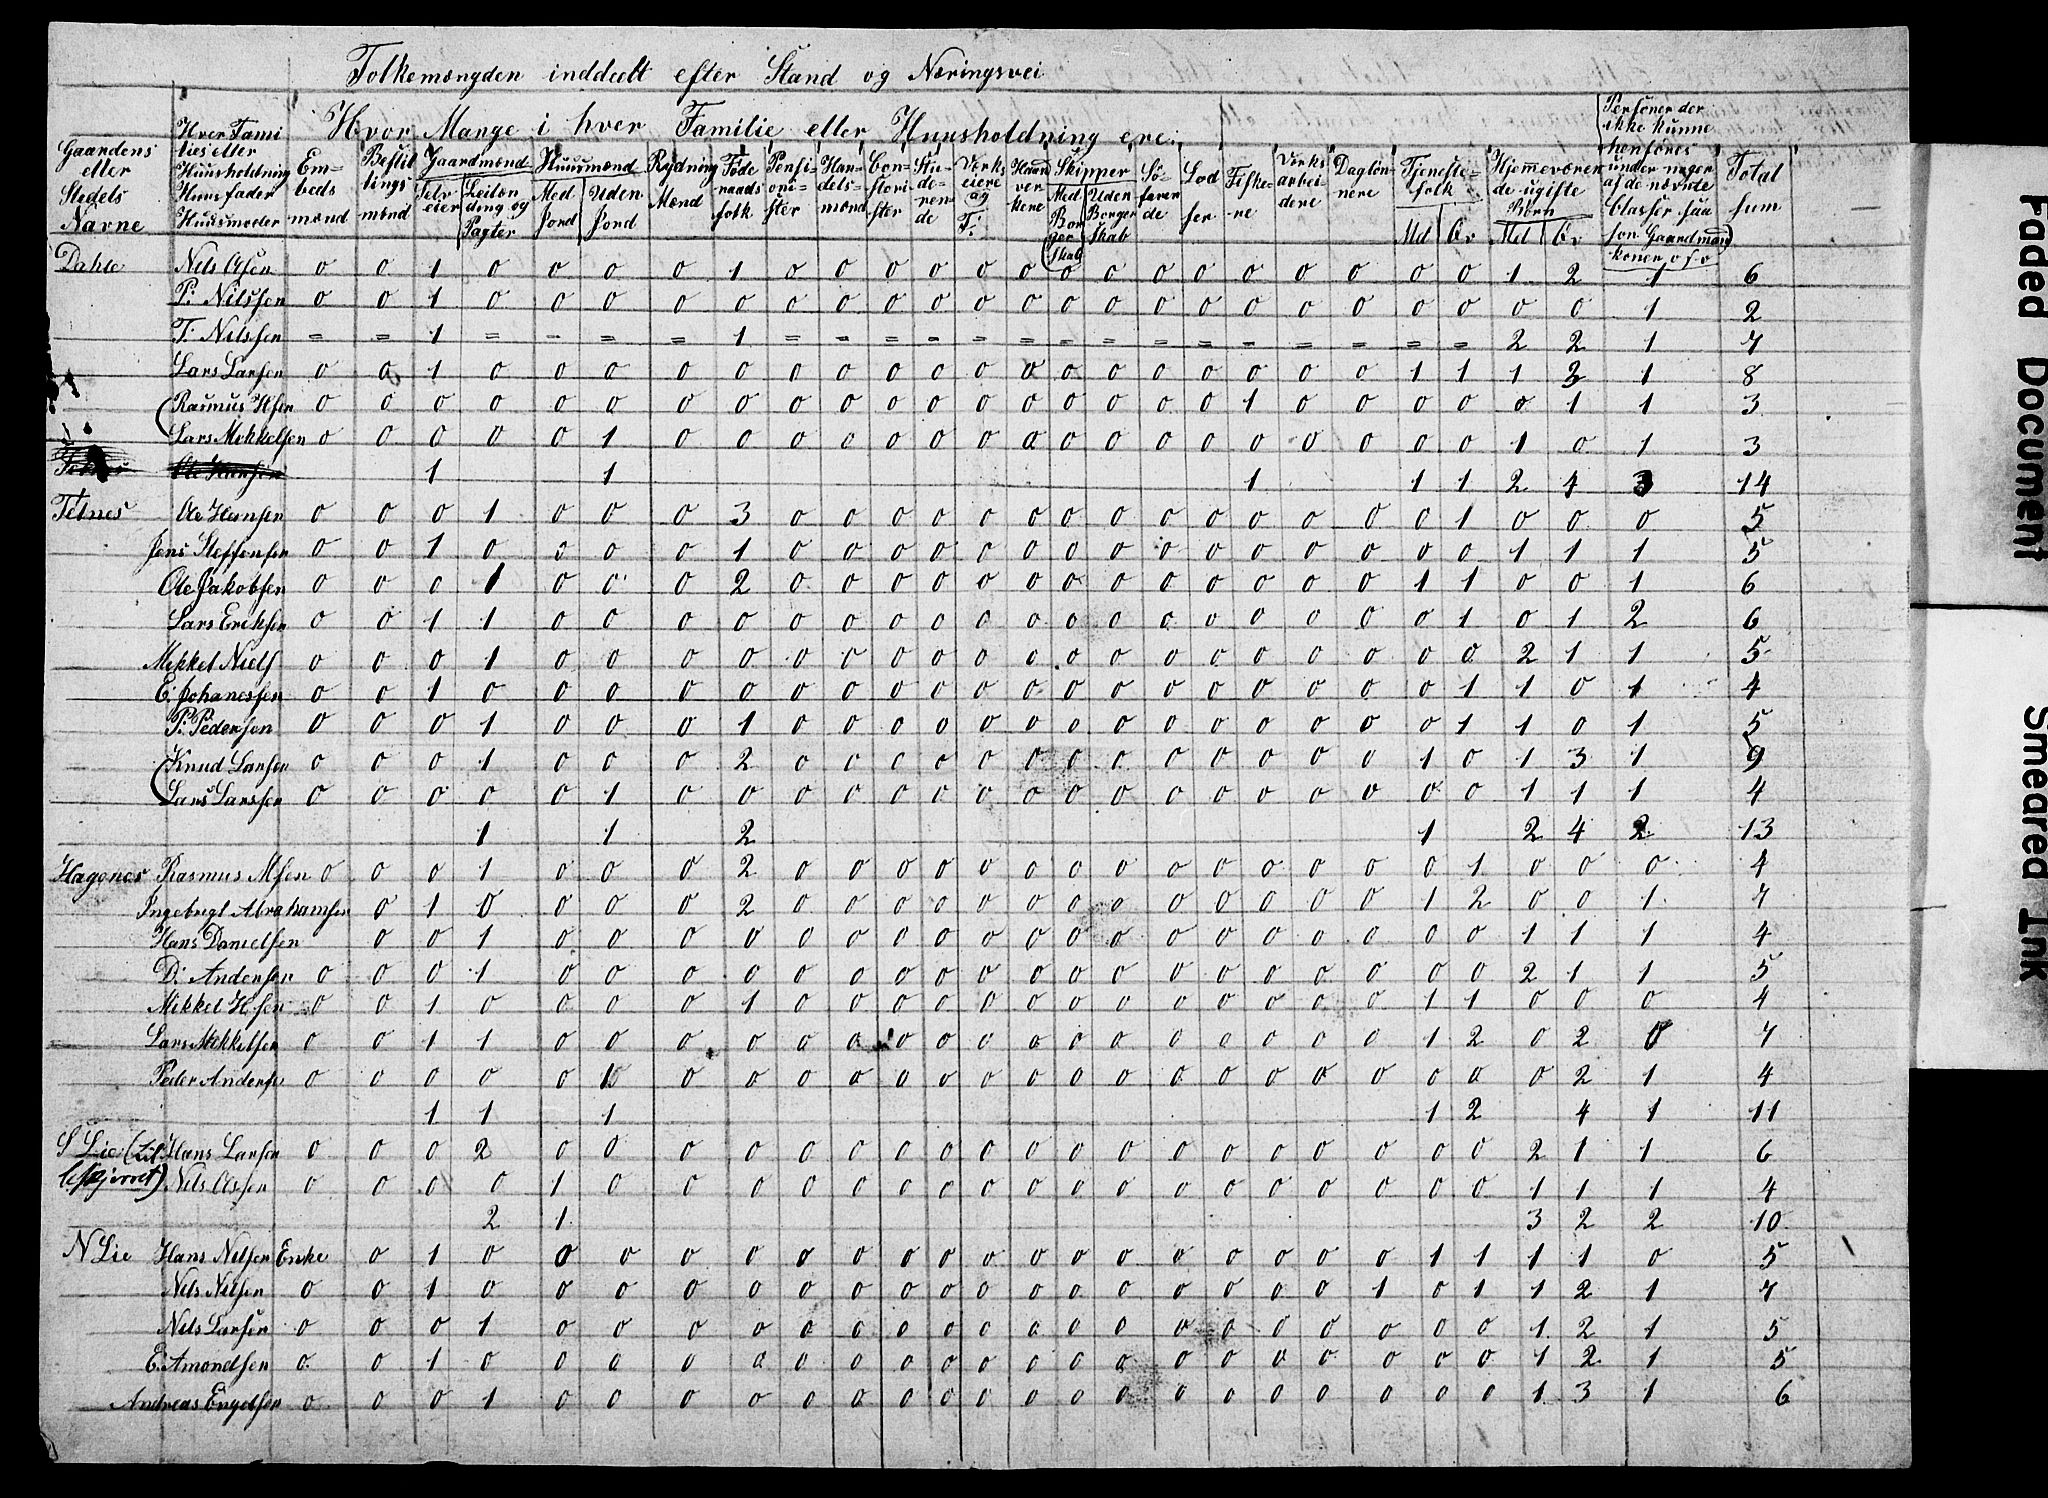 Folkemængden inddeelt efter Stand og Næringsvei
Hvor Mange i hver Familie eller Huusholdning ere:
Gaardens eller Stedets Navne | Hver Families eller Huusholdning Huusfader Huusmoder | Embedsmænd | Bestillingsmænd | Gaardmænd Selveier | Leilending og Pagter | Huusmænd Med Jord | Uden Jord | Rydning Mænd | Føderaadsfolk | Pensionister | Handelsmænd | Contorister | Studerende | Værkseiere og F: | Haandverkere | Skipper Med Borgerskab | Uden Borgerskab | Søfarende | Lodser | Fiskerne | Verksarbeidere | Daglønnere | Tjenestefolk Md | Qv | Hjemeværende ugifte Børn Md | Qv | Personer der ikke kunne henføres under nogen af de nævnte Classer saasom Gaardmandkoner o s v | Total sum
Dahle Nils Olsen 0 0 1 0 0 0 0 1 0 0 0 0 0 0 0 0 0 0 0 0 0 0 0 1 2 1 6
P: Nilssen 0 0 1 0 0 0 0 0 0 0 0 0 0 0 0 0 0 0 0 0 0 0 0 0 0 1 2
T: Nilssen = = 1 = = = = 1 = = = = = = = = = = = = = = = 2 2 1 7
Lars Larsen 0 0 1 0 0 0 0 0 0 0 0 0 0 0 0 0 0 0 0 0 0 1 1 1 2 1 8
Rasmus Hsen 0 0 0 0 0 0 0 0 0 0 0 0 0 0 0 0 0 0 1 0 0 0 0 0 1 1 3
Lars Mekkelsen 0 0 0 0 0 1 0 0 0 0 0 0 0 0 0 0 0 0 0 0 0 0 0 1 0 1 3
Ole Hansen 1 1 1 1 1 2 4 3 14
Tetnes Ole Hansen 0 0 0 1 0 0 0 3 0 0 0 0 0 0 0 0 0 0 0 0 0 0 1 0 0 0 5
Jens Steffensen 0 0 1 0 0 0 0 1 0 0 0 0 0 0 0 0 0 0 0 0 0 0 0 1 1 1 5
Ole Jakobsen 0 0 0 1 0 0 0 2 0 0 0 0 0 0 0 0 0 0 0 0 0 1 1 0 0 1 6
Lars Eriksen 0 0 1 1 0 0 0 0 0 0 0 0 0 0 0 0 0 0 0 0 0 0 1 0 1 2 6
Mekkel Niels 0 0 0 1 0 0 0 0 0 0 0 0 0 0 0 0 0 0 0 0 0 0 0 2 1 1 5
E. Johanessen 0 0 1 0 0 0 0 0 0 0 0 0 0 0 0 0 0 0 0 0 0 0 1 1 0 1 4
P: Pedersen 0 0 0 1 0 0 0 1 0 0 0 0 0 0 0 0 0 0 0 0 0 0 1 1 0 1 5
Knud Larsen 0 0 0 1 0 0 0 2 0 0 0 0 0 0 0 0 0 0 0 0 0 1 0 1 3 1 9
Lars Larssen 0 0 0 0 0 1 0 0 0 0 0 0 0 0 0 0 0 0 0 0 0 0 0 1 1 1 4
1 1 2 1 2 4 2 13
Hagenes Rasmus Msen 0 0 0 1 0 0 0 2 0 0 0 0 0 0 0 0 0 0 0 0 0 0 1 0 0 0 4
Ingebrigt Abrahamsen 0 1 0 0 0 0 2 0 0 0 0 0 0 0 0 0 0 0 0 0 1 2 0 0 1 7
Hans Danielsen 0 0 1 0 0 0 0 0 0 0 0 0 0 0 0 0 0 0 0 0 0 0 1 1 1 4
D: Andersen 0 0 0 1 0 0 0 0 0 0 0 0 0 0 0 0 0 0 0 0 0 0 0 2 1 1 5
Mikkel Hsen 0 0 1 0 0 0 0 1 0 0 0 0 0 0 0 0 0 0 0 0 0 1 1 0 0 0 4
Lars Mekkelsen 0 0 1 1 0 0 0 0 0 0 0 0 0 0 0 0 0 0 0 0 0 1 2 0 2 0 7
Peder Anderse 0 0 0 0 0 1 0 0 0 0 0 0 0 0 0 0 0 0 0 0 0 0 0 0 2 1 4
1 1 1 1 2 4 1 11
S Lie (Hans Larsen 0 0 0 2 0 0 0 0 0 0 0 0 0 0 0 0 0 0 0 0 0 0 0 2 1 1 6
Nils Olssen 0 0 0 0 1 0 0 0 0 0 0 0 0 0 0 0 0 0 0 0 0 0 0 1 1 1 4
2 1 3 2 2 10
N Lie Hans Nilsen Enke 0 1 0 0 0 0 0 0 0 0 0 0 0 0 0 0 0 0 0 0 1 1 1 1 0 5
Nils Nilsen 0 0 1 0 0 0 0 0 0 0 0 0 0 0 0 0 0 0 0 0 1 0 1 1 2 1 7
Nils Larsen 0 0 0 1 0 0 0 0 0 0 0 0 0 0 0 0 0 0 0 0 0 0 0 1 2 1 5
E. Amondsen 0 0 1 0 0 0 0 0 0 0 0 0 0 0 0 0 0 0 0 0 0 0 0 1 2 1 5
Andreas Engelsen 0 0 0 1 0 0 0 0 0 0 0 0 0 0 0 0 0 0 0 0 0 0 0 1 3 1 6
Faded Document
Smeared Ink